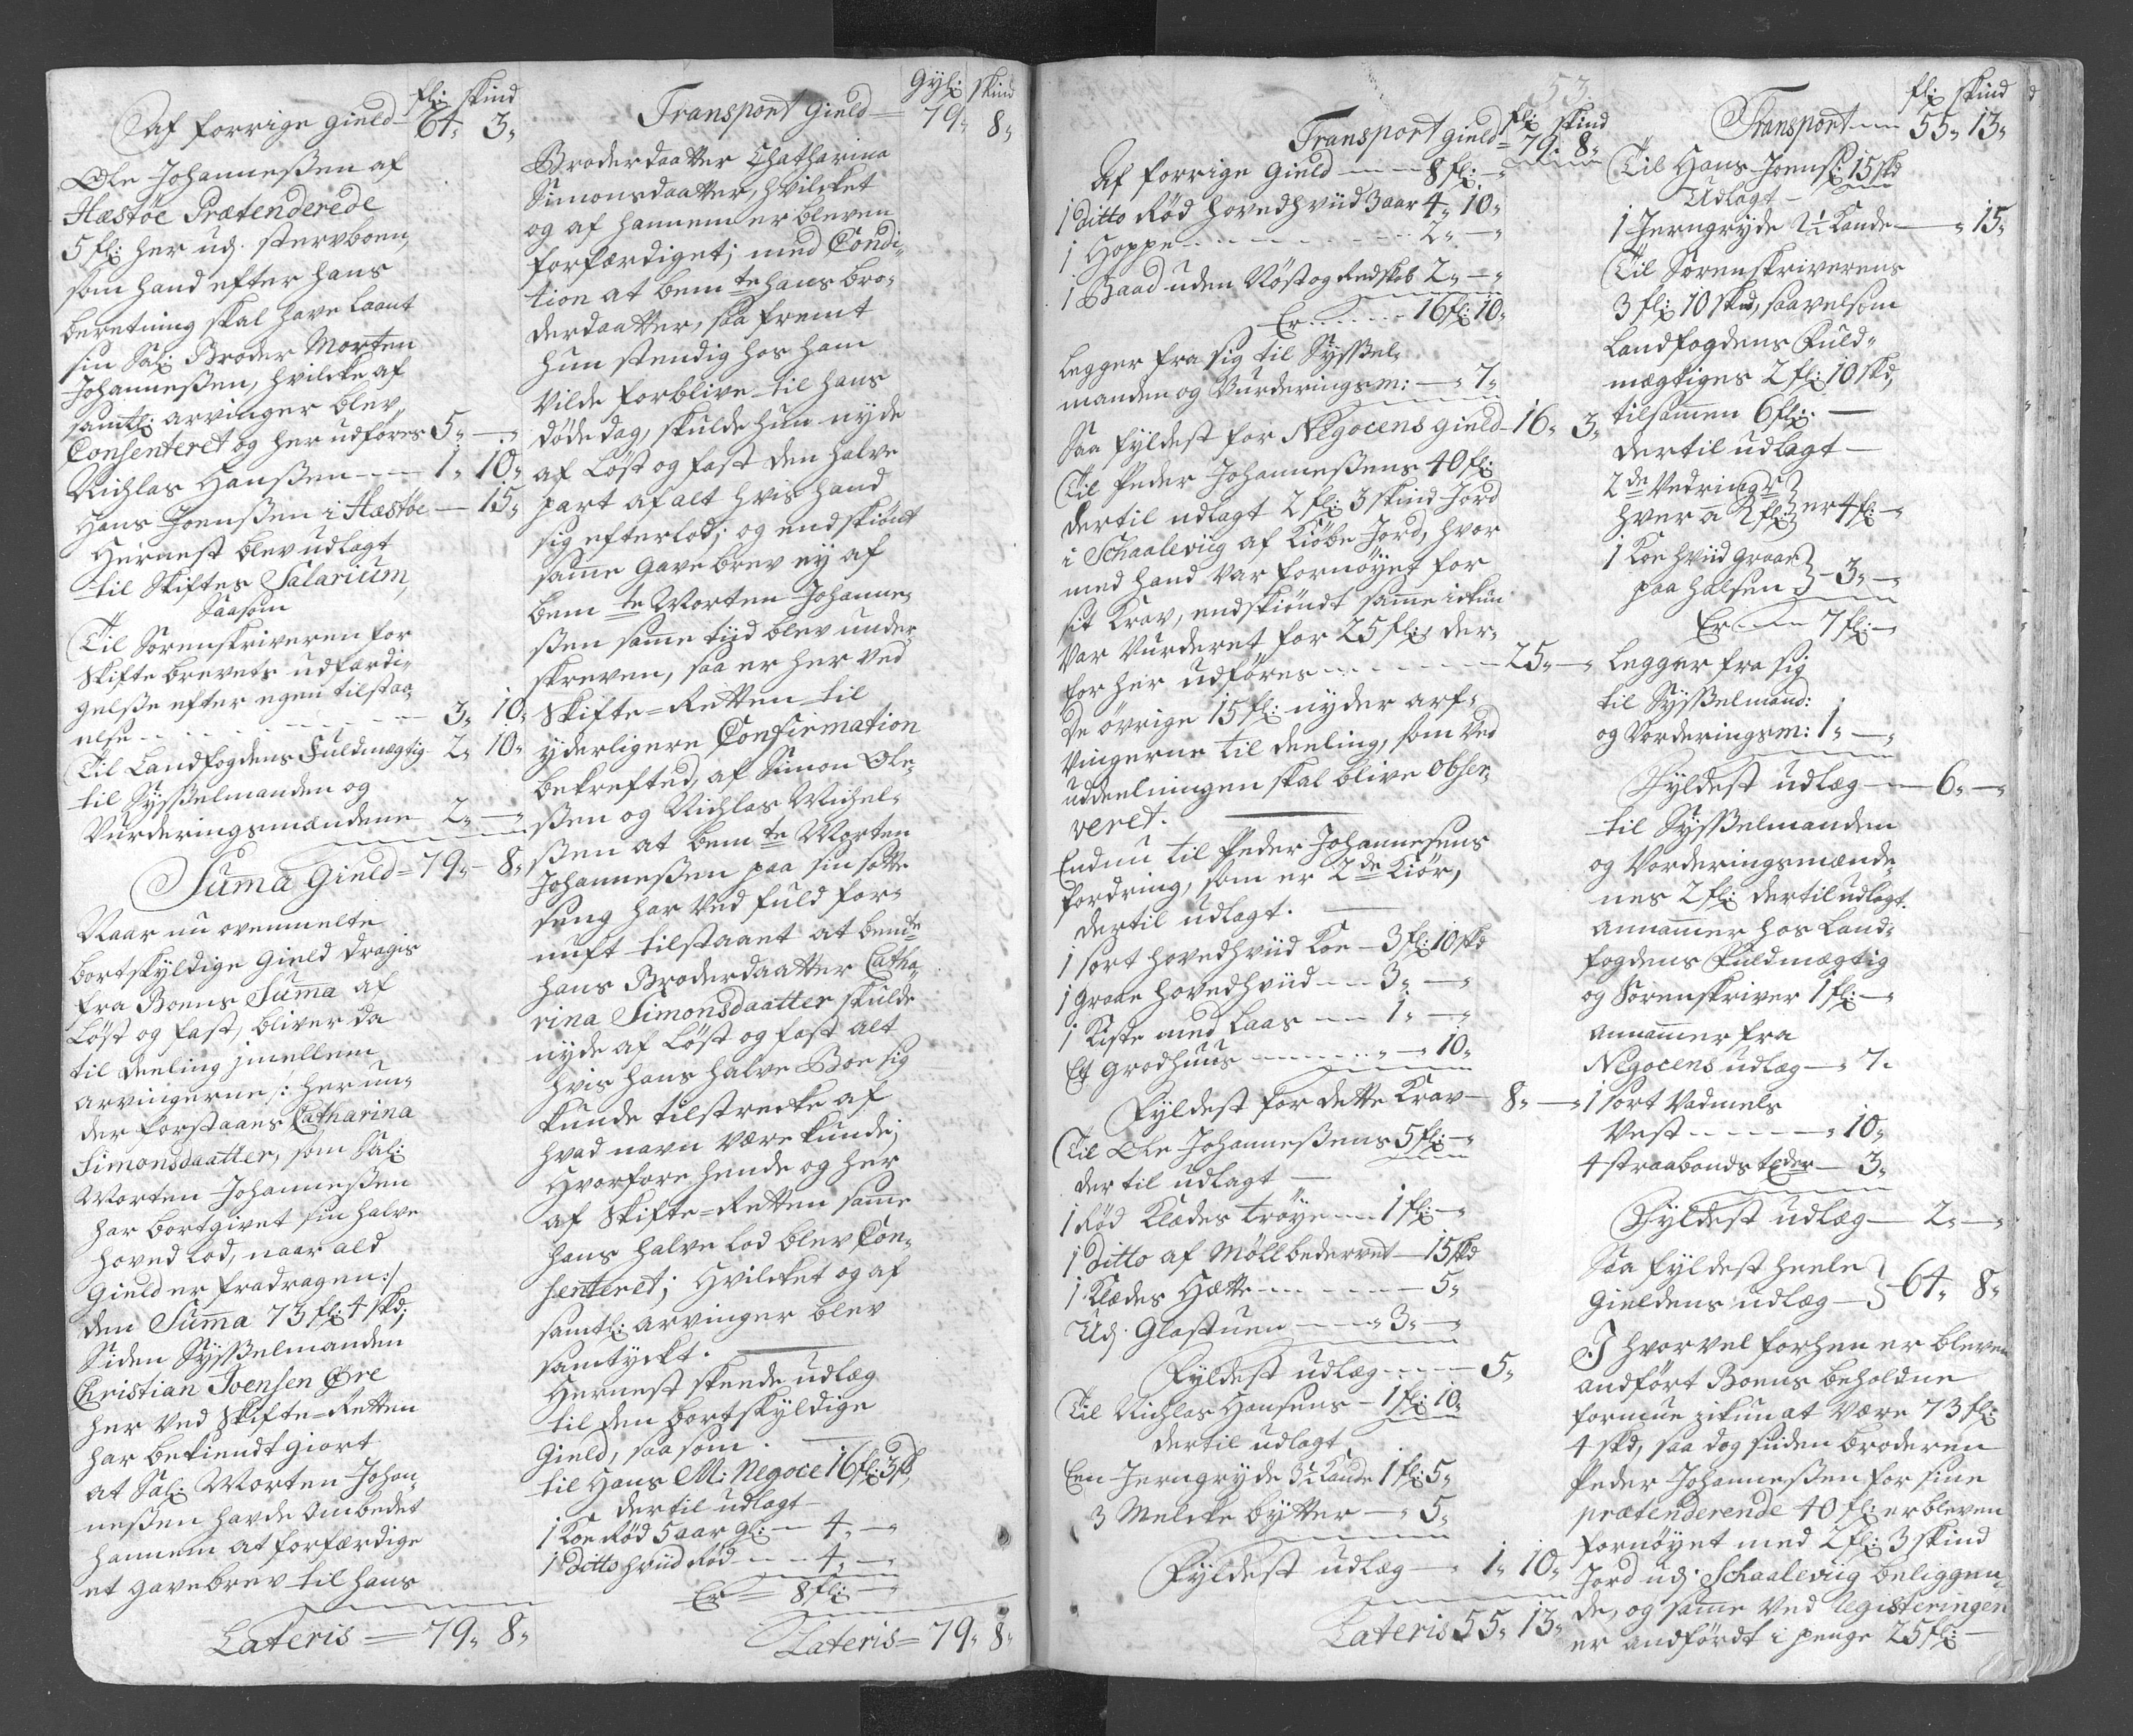 fl: skind
Af forrige gield 64„ 3„
Ole Johanneßen af
Hæstöe Prætenderede
5 fl: her udj. sterfboen,
som hand efter hans
beretning skal have laant
sin Sal: Broder Morten
Johanneßen, hvilcke af
samtl: arvinger blev
Consenteret og her udföres 5„ —„
Nichlas Hanßen — 1„ 10„
Hans Joenßen i Hæstöe — 15„
Hernest blev udlagt
til Skiftes Salarium,
Saasom
Til Sorenskriveren for
Skiftebrevets udfærdi„
gelße efter egen tilstaa„
else — 3„ 10„
Til Landfogdens Fuldmægtig 2„ 10„
til Sysßelmanden og
Vurderingsmændene 2„ —„
Suma Gield = 79„ 8„
Naar nu ovenmelte
bortskyldige Gield dragis
fra Boens Suma af
Löst og fast, bliver da
til deeling jmellem
arvingerne /: herun„
der forstaaes Catharina
Simonsdaatter, som Sal:
Morten Johanneßen
har bortgivet sin halve
hoved lod, naar ald
Gield er fradragen :/
den Suma 73 fl: 4 skd;
Siden Sysßelmanden
Christian Joensen Öre
her ved Skifte=Retten
har bekiendtgiort
at Sal: Morten Johan„
neßen havde Ombedet
hannem at forfærdige
et gavebrev til hans
Lateris = 79„ 8„
Gyl: skind
Transport Gield = 79„ 8„
Broderdaatter Chatharina
Simonsdaatter, hvilcket
og af hannem er bleven
forfærdiget; med Condi„
tion at bemte hans bro„
derdaatter, saa fremt
hun stendig hos ham
vilde forblive til hans
döde dag, skulde hun nyde
af Löst og fast den halve
part af alt hvis hand
sig efterlod; og endskiönt
same Gavebrev ey af
bemte Morten Johanne„
ßen same tiid blev under„
skreven, saa er her ved
Skifte=Retten til
yderligere Confirmation
bekrefted, af Simon Ole„
ßen og Nichlas Michel„
ßen at bemte Morten
Johanneßen paa sin sotte
seng har ved fuld for„
nuft tilstaaet at bemte
hans Broderdaatter Catha„
rina Simonsdaatter skulde
nyde af Löst og fast alt
hvis hans halve Boe sig
kunde tilstrecke af
hvad navn være kunde;
Hvorfore hende og her
af Skifte=Retten same
hans halve lod blev Con„
senteret; Hvilcket og af
samtl: arvinger blev
samtyckt.
Hernest skeede udlæg
til den bortskyldige
Gield, saasom.
til Hans M: Negoce 16 fl: 3 sk„
dertil udlagt
1 Koe Rød 5 aar gl: — 4„ —„
1 ditto hviid Rød — 4„ —„
Er = 8 fl: —„
Lateris = 79„ 8„
53
fl: skind
Transport gield = 79„ 8„
Af forrige Gield — 8 fl: —„
1 ditto Rød hovedhviid 3 aar 4„ 10„
1 Hoppe — 2„ —„
1 Baad uden Nöst og Redskab 2„ —„
Er — 16 fl: 10„
Legger fra sig til Sysßel„
manden og Vurderingsm: —„ 7„
Saa fyldest for Negocens gield 16„ 3„
Til Peder Johanneßens 40 fl:
dertil udlagt 2 fl: 3 skind Jord
i Schaaleviig af Kiöbe Jord, hvor
med hand var fornöyet for
sit Krav, endskiöndt same ickun
var Vurderet for 25 fl: der„
for her udföres — 25„ —„
De övrige 15 fl: nyder arf„
vingerne til deeling, som ved
uddeelningen skal blive obser„
veret.
Endnu til Peder Johannesens
fordring, som er 2de Kiör,
dertil udlagt.
1 sort hovedhviid Koe — 3 fl: 10 skd
1 graae hovedhviid — 3„ —„
1 Kiste med Laas — 1„ —„
Et Grodhuus — „ — 10„
Fyldest for dette Krav — 8„ —„
Til Ole Johanneßens 5 fl: —„
der til udlagt —
1 Rød Klædes tröye — 1 fl: —„
1 ditto af Möll bedervet — 15 skd
1 Klædes Hætte — 5„
Udj. Glastuen — „ 3„ —„
Fyldest udlæg — 5„
Til Nichlas Hansens — 1 fl: 10„
dertil udlagt
Een Jerngryde 3½ Kande 1 fl: 5„
3 Melcke bytter —„ 5„
Fyldest udlæg — 1„ 10„
Lateris 55„ 13„
fl: skind
Transport — 55„ 13„
Til Hans Joenß: 15 skd
Udlagt —
1 Jerngryde 2½ Kande — „ 15„
Til Sorenskriverens
3 fl: 10 skd, saavelsom
Landfogdens Fuld„
mægtiges 2 fl: 10 skd,
tilsamen 6 fl: —
dertil udlagt —
2de Vedringr
hver a 2 fl: er 4 fl: —„
1 Koe hviid graae
paa halsen — 3„ —„
Er — 7 fl: —„
Legger fra sig
til Sysßelmand:
og Vorderingsm: 1„ —„
Fyldest udlæg — 6„ —„
til Sysßelmanden
og Vorderingsmænde„
nes 2 fl: dertil udlagt.
annamer hos Land„
fogdens Fuldmægtig
og Sorenskriver 1 fl: —„
annamer fra
Negocens udlæg —„ 7„
1 sort Vadmels
Vest — „ 10„
4 straabonds tæder — 3„
Fyldest udlæg — 2„ —„
Saa fyldest heele
Gieldens udlæg — 64„ 8„
I hvorvel forhen er bleven
andfört Boens beholdne
formue ickun at være 73 fl:
4 skd, saa dog siiden broderen
Peder Johanneßen for sine
prætenderende 40 fl: er bleven
fornöyet med 2 fl: 3 skind
Jord udj Schaaleviig beliggen„
de, og same ved Registeringen
er andfördt i penge 25 fl: —